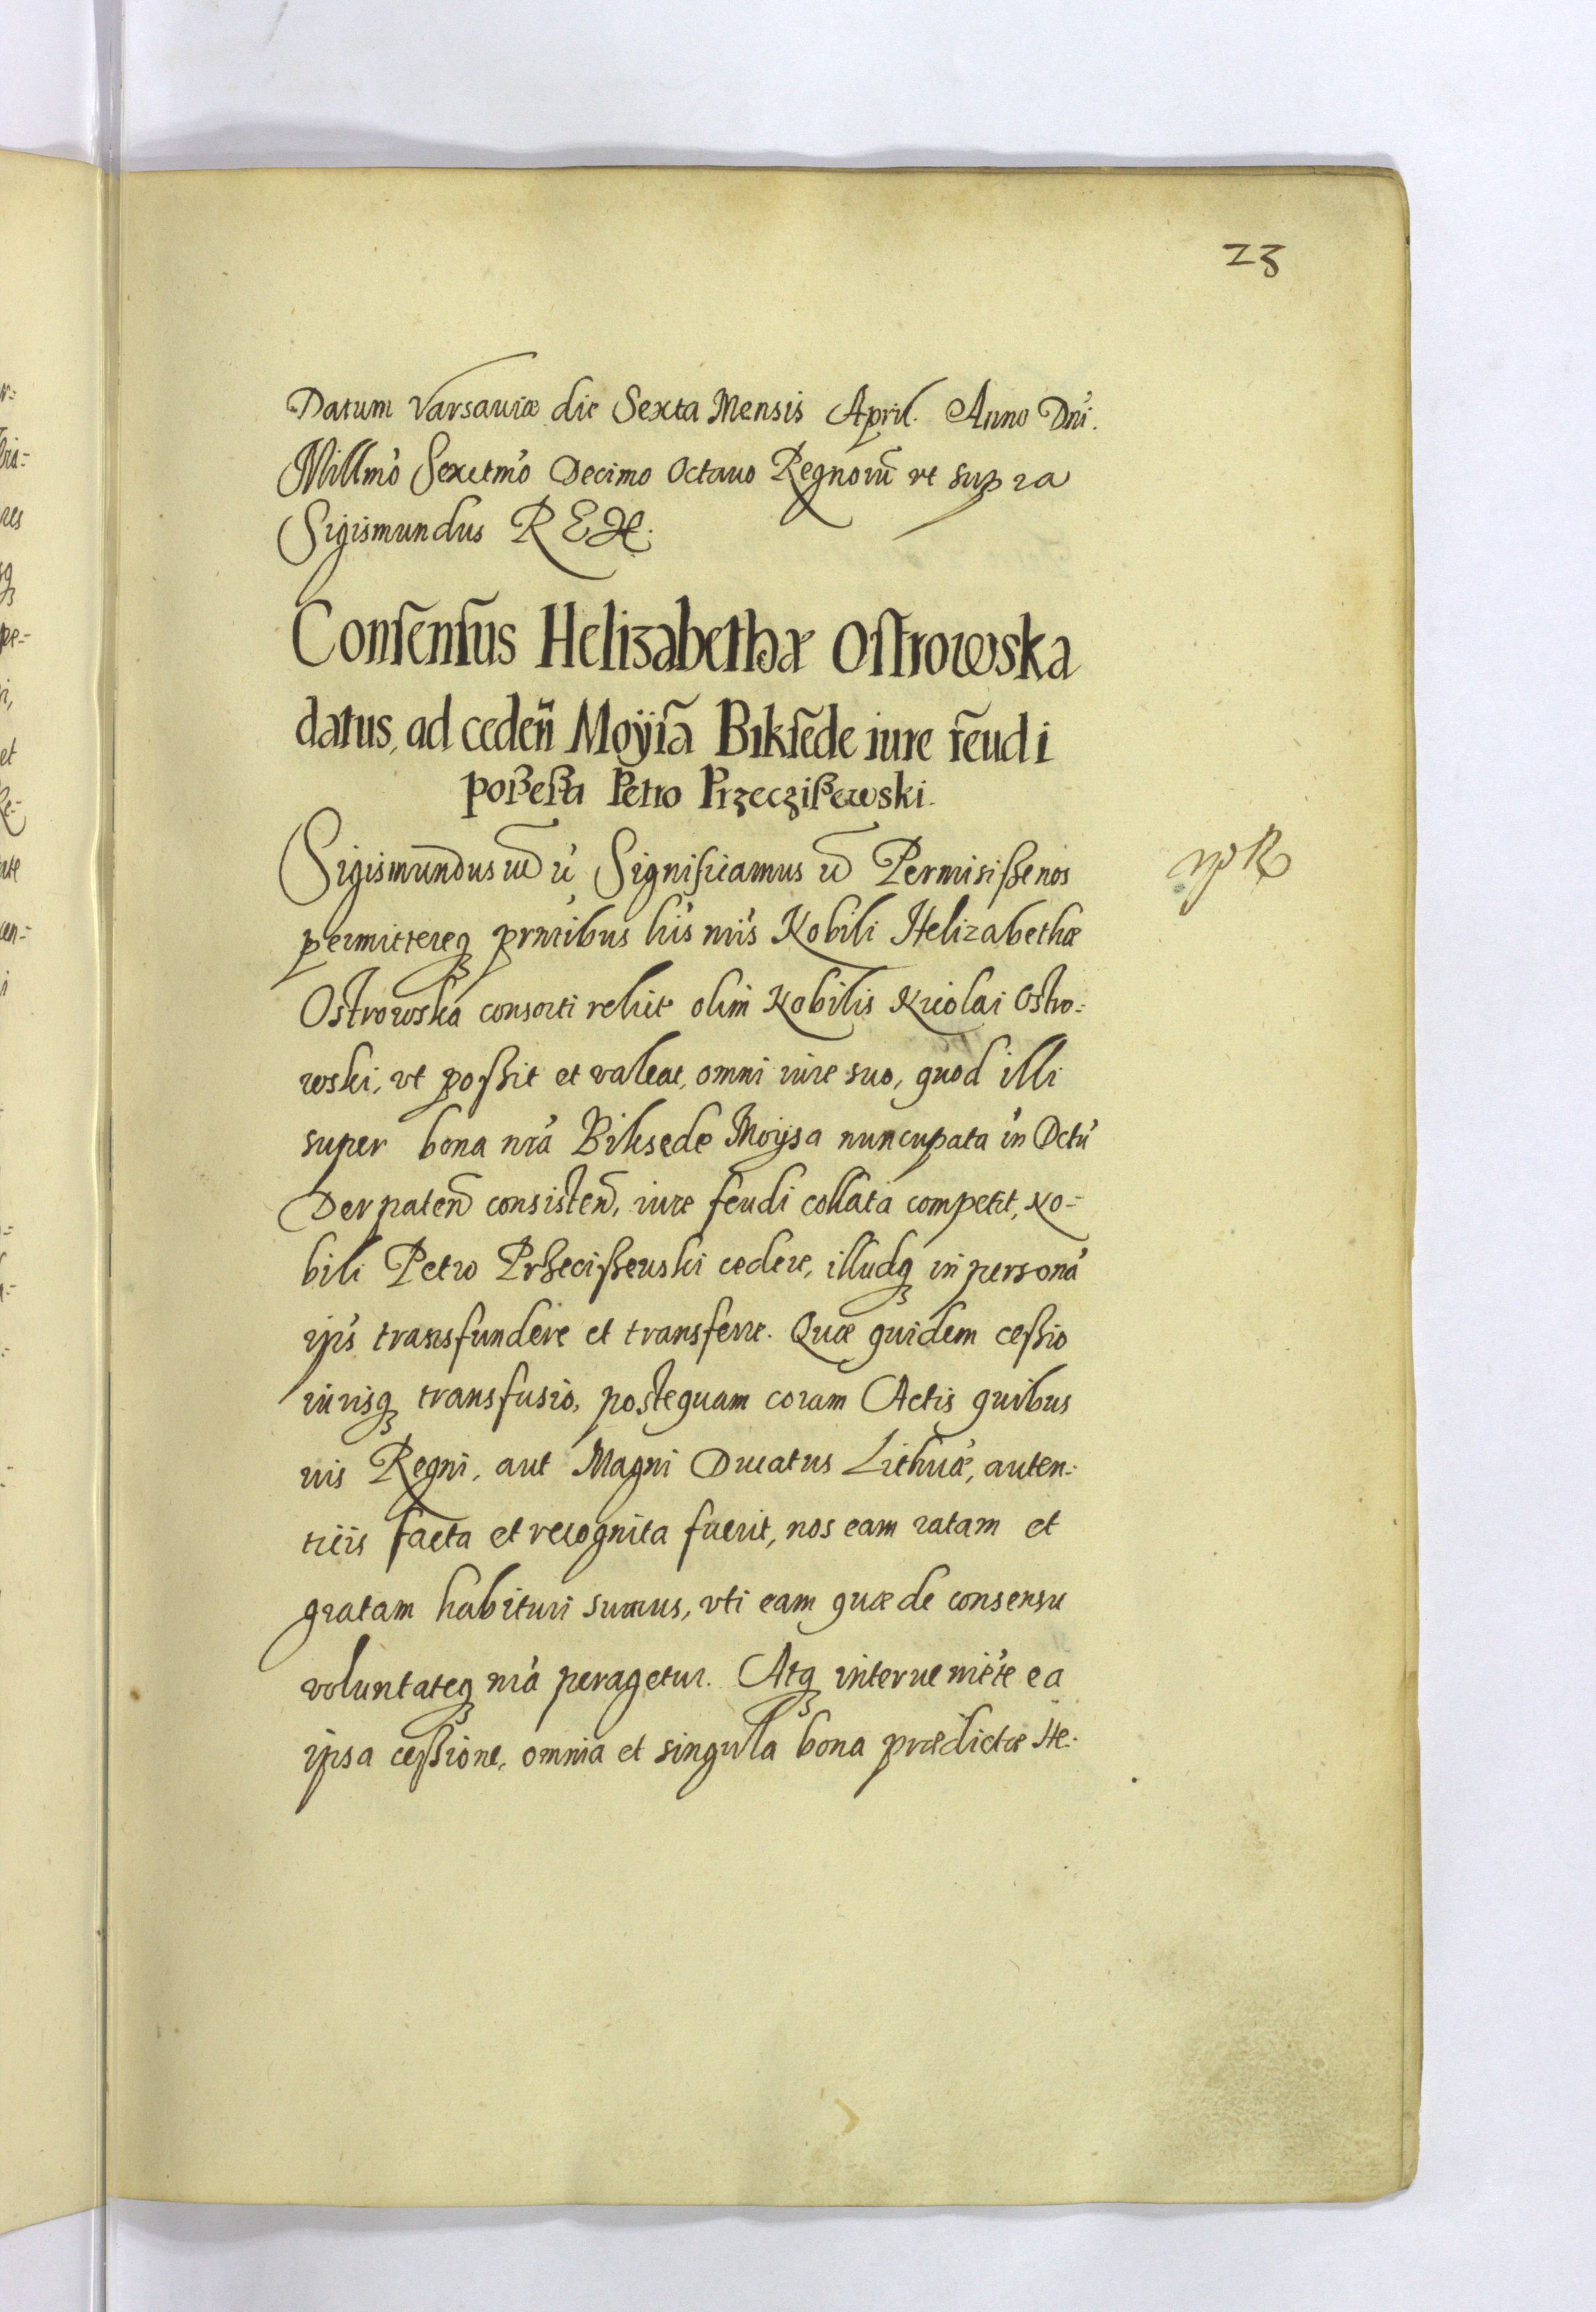 23
Datum Varsaviæ die Sexta Mensis April. Anno Dni.
Millmo Sexctmo Decimo Octauo Regnorū vt supra
Sigismundus REX.
Consensus Helizabethæ Ostrowska
datus, ad ceden̄ Moÿsa Biksede iure feudi
poßeßa Petro Przeczißewski.
Sigismundus Significamus Permisißenos
permittereq prntibus hís nrís Nobili Helizabethæ
Ostrowska consorti relict olim Nobilis Nicolai Ostro-
wski, vt poßit et valeat, omni iure suo, quod illi
super bona nrá Biksede Moysa nuncupata in Dctú
Derpaten̄ consisten̄, iure feudi collata competit, No-
bili Petro Przecißewski cedere, illudq in personá
ips transfundere et transferre. Quæ quidem ceßio
iurisq transfusio, posteguam coram Actis quibus
uis Regni, aut Magni Ducatus Lithuæ, auten-
ticis facta et recognita fuerit, nos eam ratam et
gratam habituri sumus, vti eam quæ de consensu
voluntateq nrá peragetur. Atq interueniete ea
ipsa ceßione, omnia et singula bona prædictæ He-